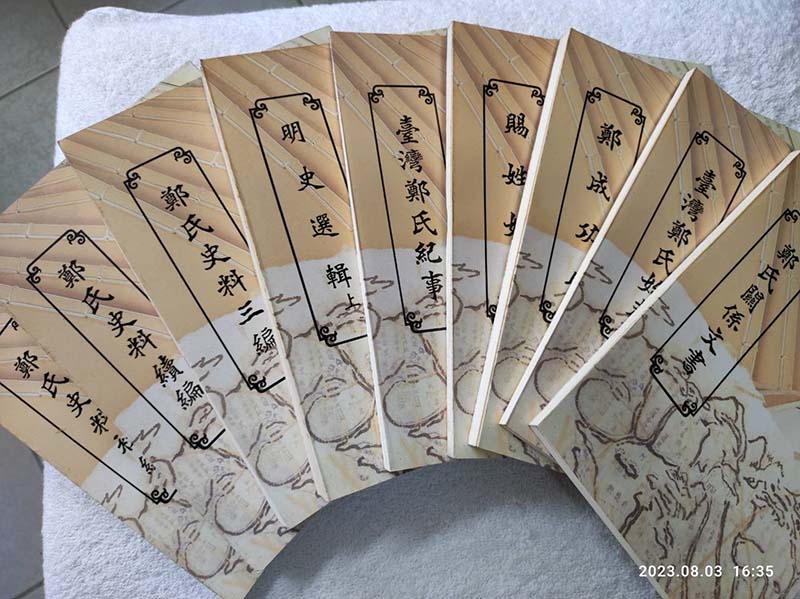 鄭氏史料初編
鄭氏史料續編
鄭氏史料三編
明史選輯 上
臺灣鄭氏紀事
賜姓始
鄭成功
臺灣鄭氏始
鄭氏關係文書
2023.08.03 16:35